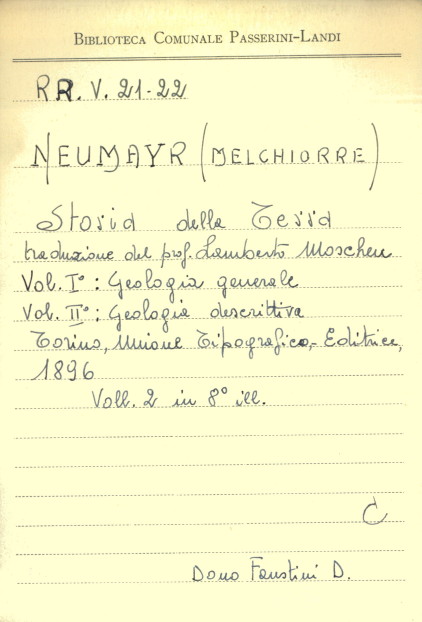 BIBLIOTECA COMUNALE PASSERINI-LANDI
RR. V. 21-22
NEUMAYR (MELCHIORRE)
Storia della Terra
traduzione del prof. Lamberto Moschen
Vol. I°: Geologia generale
Vol. II°: Geologia descrittiva
Torino, Unione Tipografico-Editrice,
1896
Voll. 2 in 8° ill.
C
Dono Faustini D.